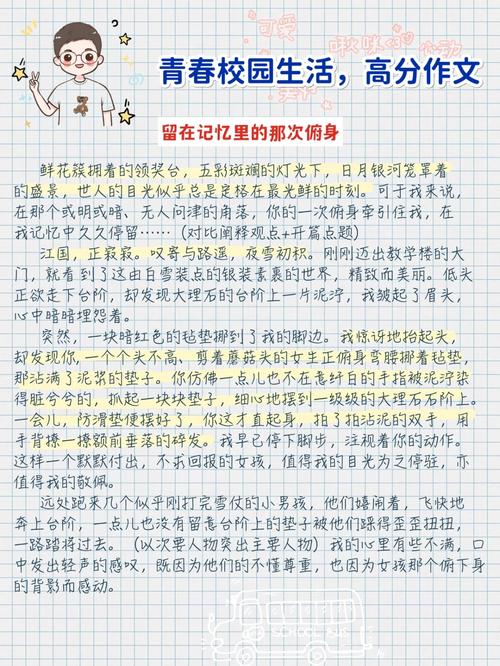 可爱
啾咪 你 心动
青春校园生活，高分作文
留在记忆里的那次俯身
鲜花簇拥着的领奖台，五彩斑斓的灯光下，日月银河笼罩着
的盛景，世人的目光似乎总是定格在最光鲜的时刻。可于我来说，
在那个或明或暗、无人问津的角落，你的一次俯身牵引住我，在
我记忆中久久停留……（对比阐释观点+开篇点题）
江国，正寂寂。叹寄与路遥，夜雪初积。刚刚迈出教学楼的大
门，就看到了这由白雪装点的银装素裹的世界，精致而美丽。低头
正欲走下台阶，却发现大理石的台阶上一片泥泞，我皱起了眉头，
心中暗暗埋怨着。
突然，一块暗红色的毡垫挪到了我的脚边。我惊讶地抬起头，
却发现你，一个个头不高、剪着蘑菇头的女生正俯身弯腰挪着毡垫，
那沾满了泥浆的垫子。你仿佛一点儿也不在意纤白的手指被泥泞染
得脏兮兮的，抓起一块块垫子，细心地摆到一级级的大理石石阶上。
一会儿，防滑垫便摆好了，你这才直起身，拍了拍沾泥的双手，用
手背撩一撩额前垂落的碎发。我早已停下脚步，注视着你的动作。
这样一个默默付出，不求回报的女孩，值得我的目光为之停驻，亦
值得我的敬佩。
远处跑来几个似乎刚打完雪仗的小男孩，他们嬉闹着，飞快地
奔上台阶，一点儿也没有留意台阶上的垫子被他们踩得歪歪扭扭，
一路踏将过去。（以次要人物突出主要人物）我的心里有些不满，口
中发出轻声的感叹，既因为他们的不懂尊重，也因为女孩那个俯下身
的背影而感动。
SCHOOL BUS